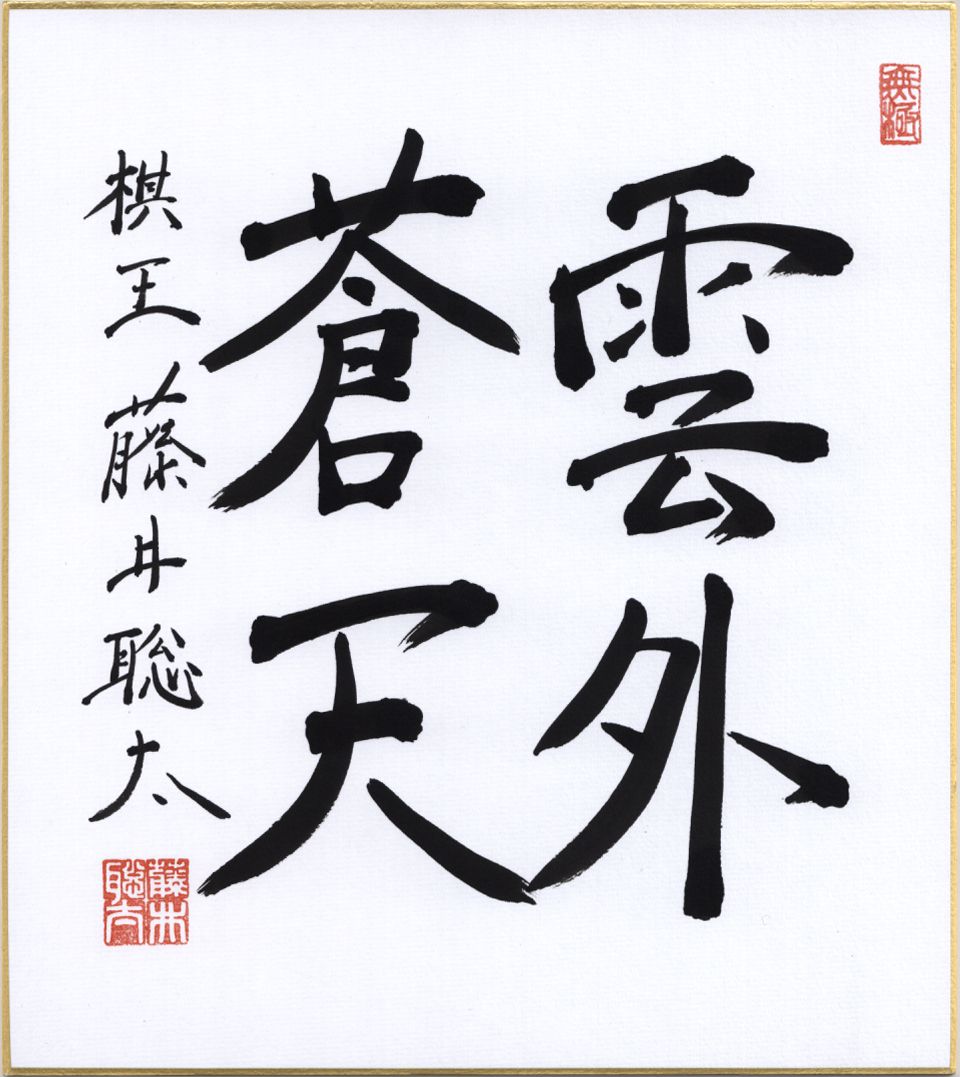 無極
雲外
蒼天
棋王 藤井聡太
藤井
聡太